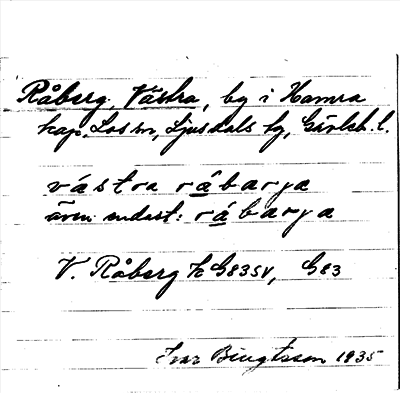 Råberg, Västra, by i Hamra
kap. Los sn, Ljusdals tg, Gävleb. l.
västra rábarja
även endast: rábarja
V. Råberg k G83SV, G83
Ivar Bengtsson 1935